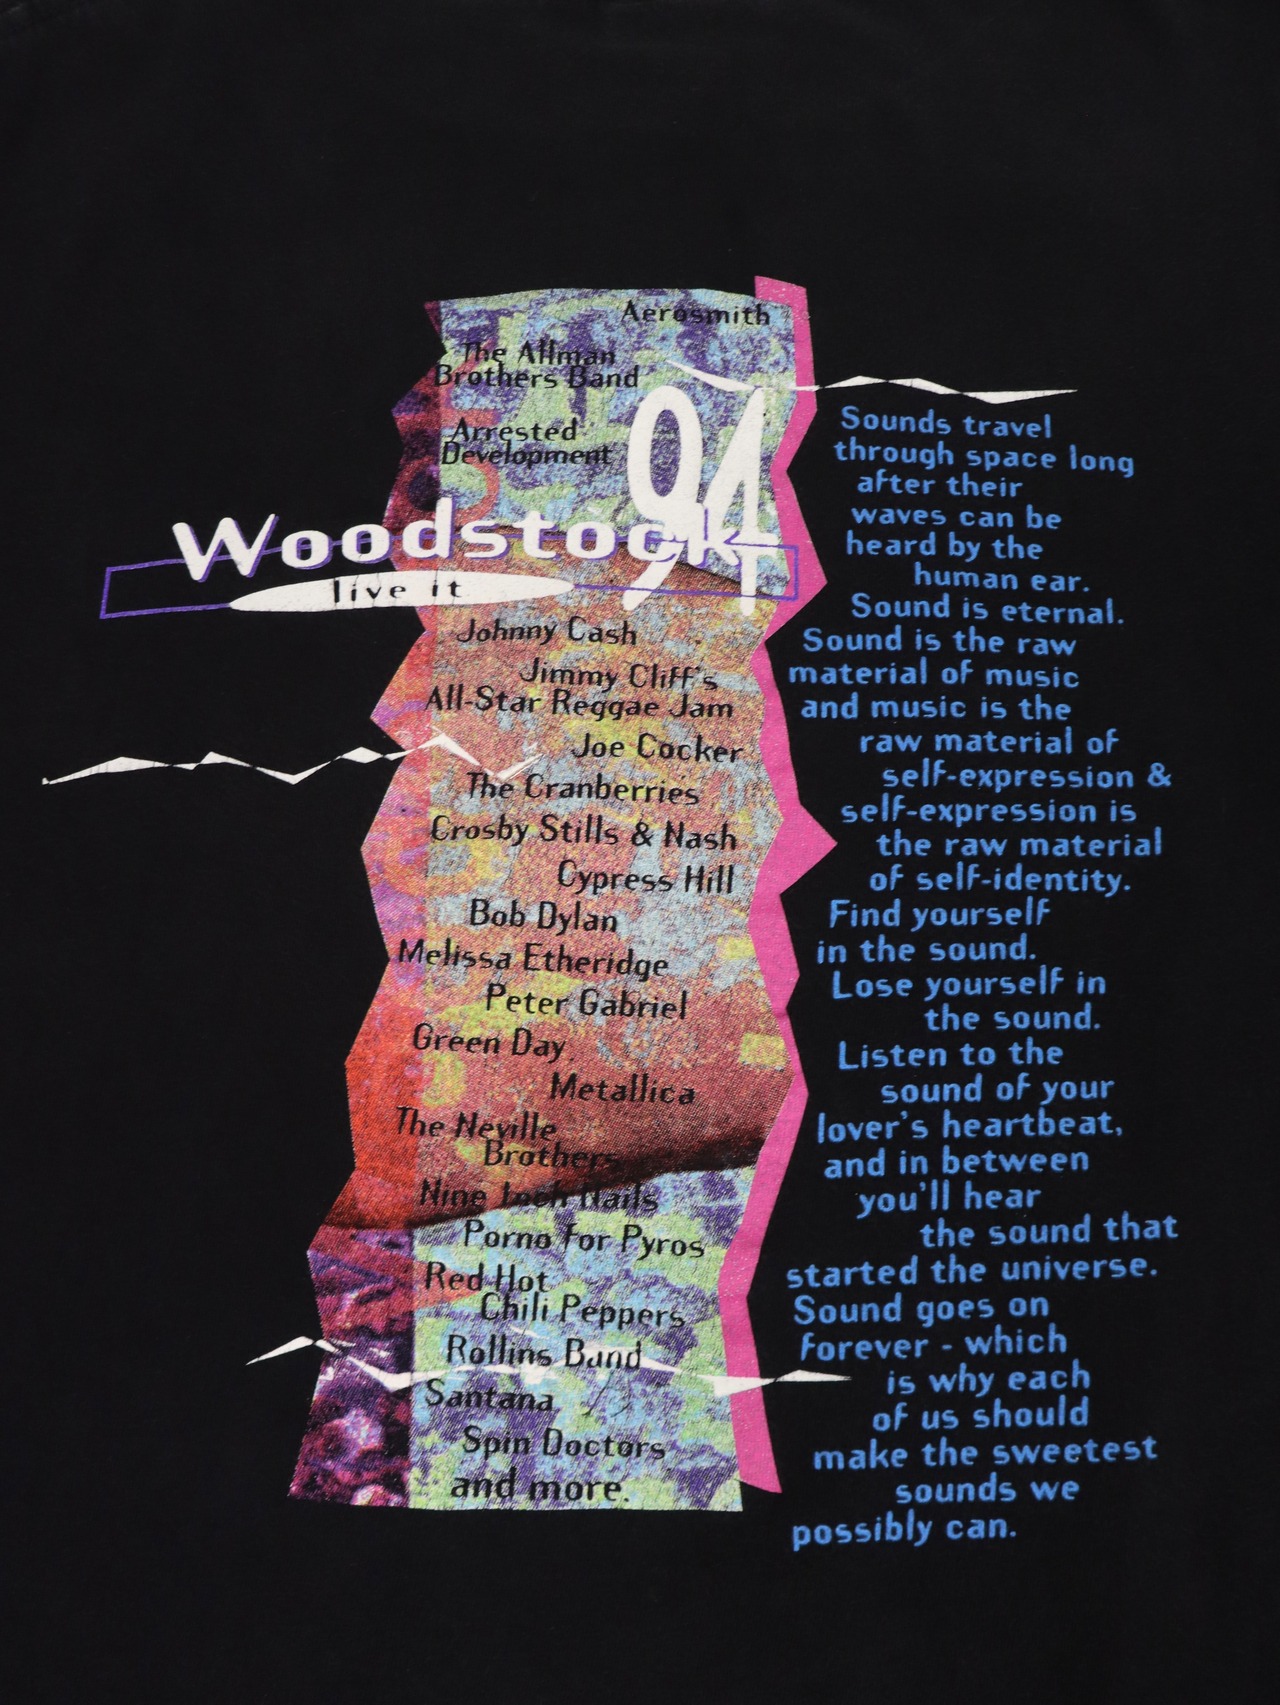 Aerosmith
The Allman
Brothers Band
Arrested
Development
94
Woodstock
live it
Johnny Cash
Jimmy Cliff's
All-Star Reggae Jam
Joe Cocker
The Cranberries
Crosby Stills & Nash
Cypress Hill
Bob Dylan
Melissa Etheridge
Peter Gabriel
Green Day
Metallica
The Neville
Brothers
Nine Inch Nails
Porno for Pyros
Red Hot
Chili Peppers
Rollins Band
Santana
Spin Doctors
and more.
Sounds travel
through space long
after their
waves can be
heard by the
human ear.
Sound is eternal.
Sound is the raw
material of music
and music is the
raw material of
self-expression &
self-expression is
the raw material
of self-identity.
Find yourself
in the sound.
Lose yourself in
the sound.
Listen to the
sound of your
lover's heartbeat,
and in between
you'll hear
the sound that
started the universe.
Sound goes on
forever - which
is why each
of us should
make the sweetest
sounds we
possibly can.